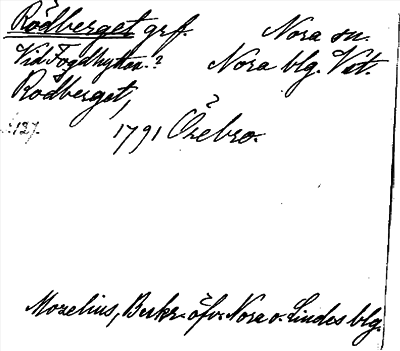 Rödberget grf. Nora sn.
Vid Fogdhyttan? Nora blg. Vet.
Rödberget,
127. 1791 Örebro.
Mozelius, Beskr. öfv. Nora o. Lindes blg.